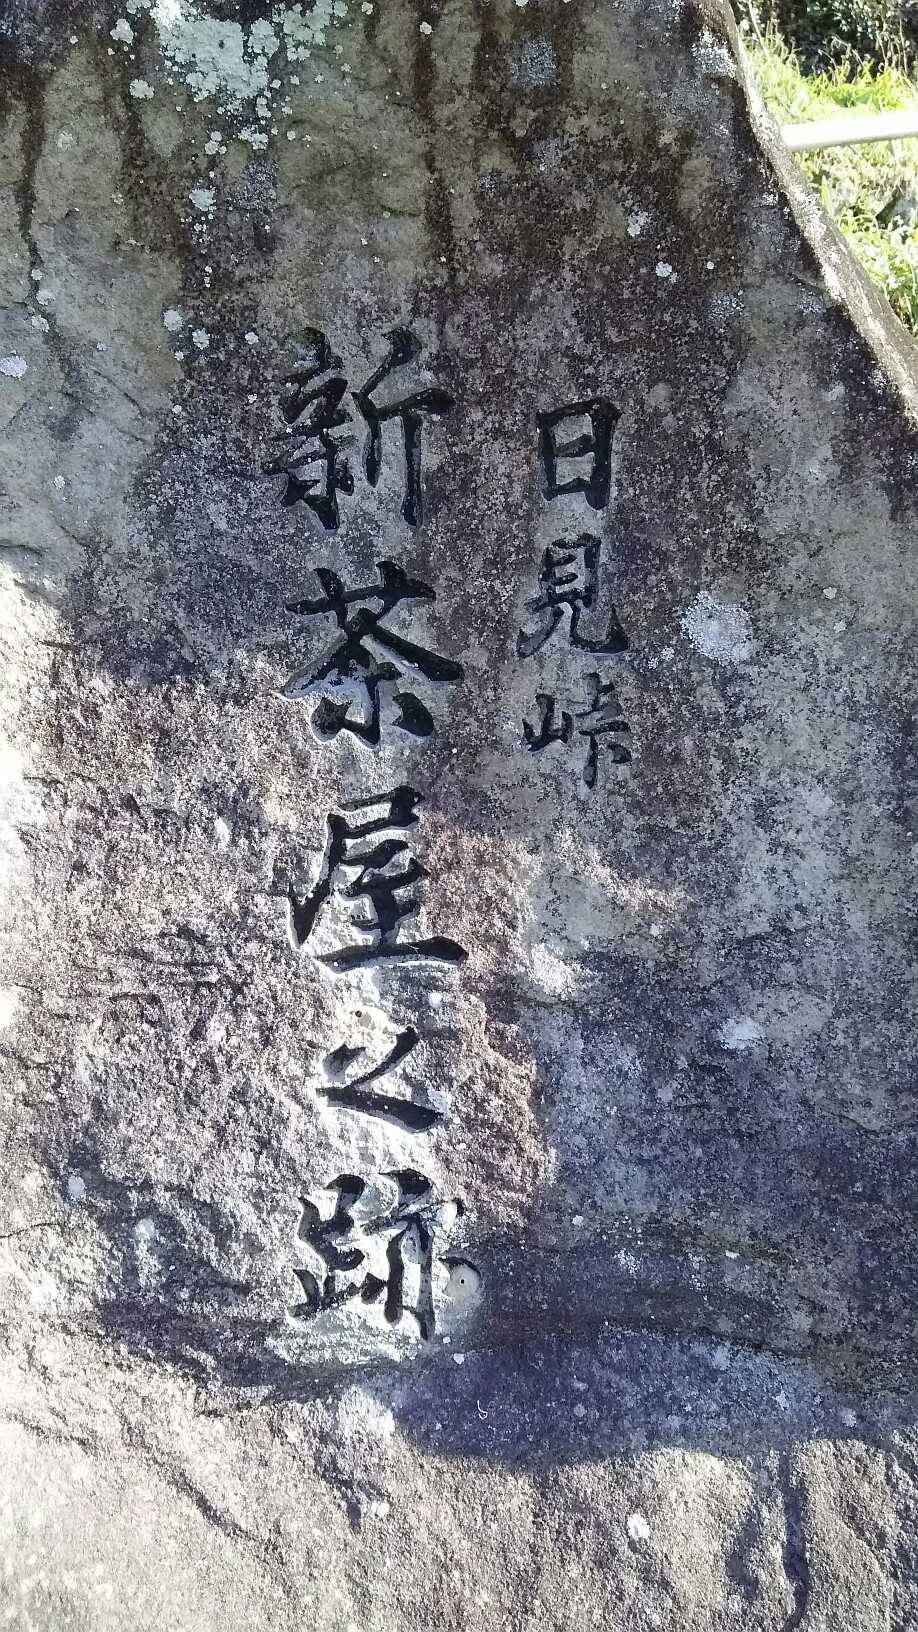 日見峠
新茶屋之跡